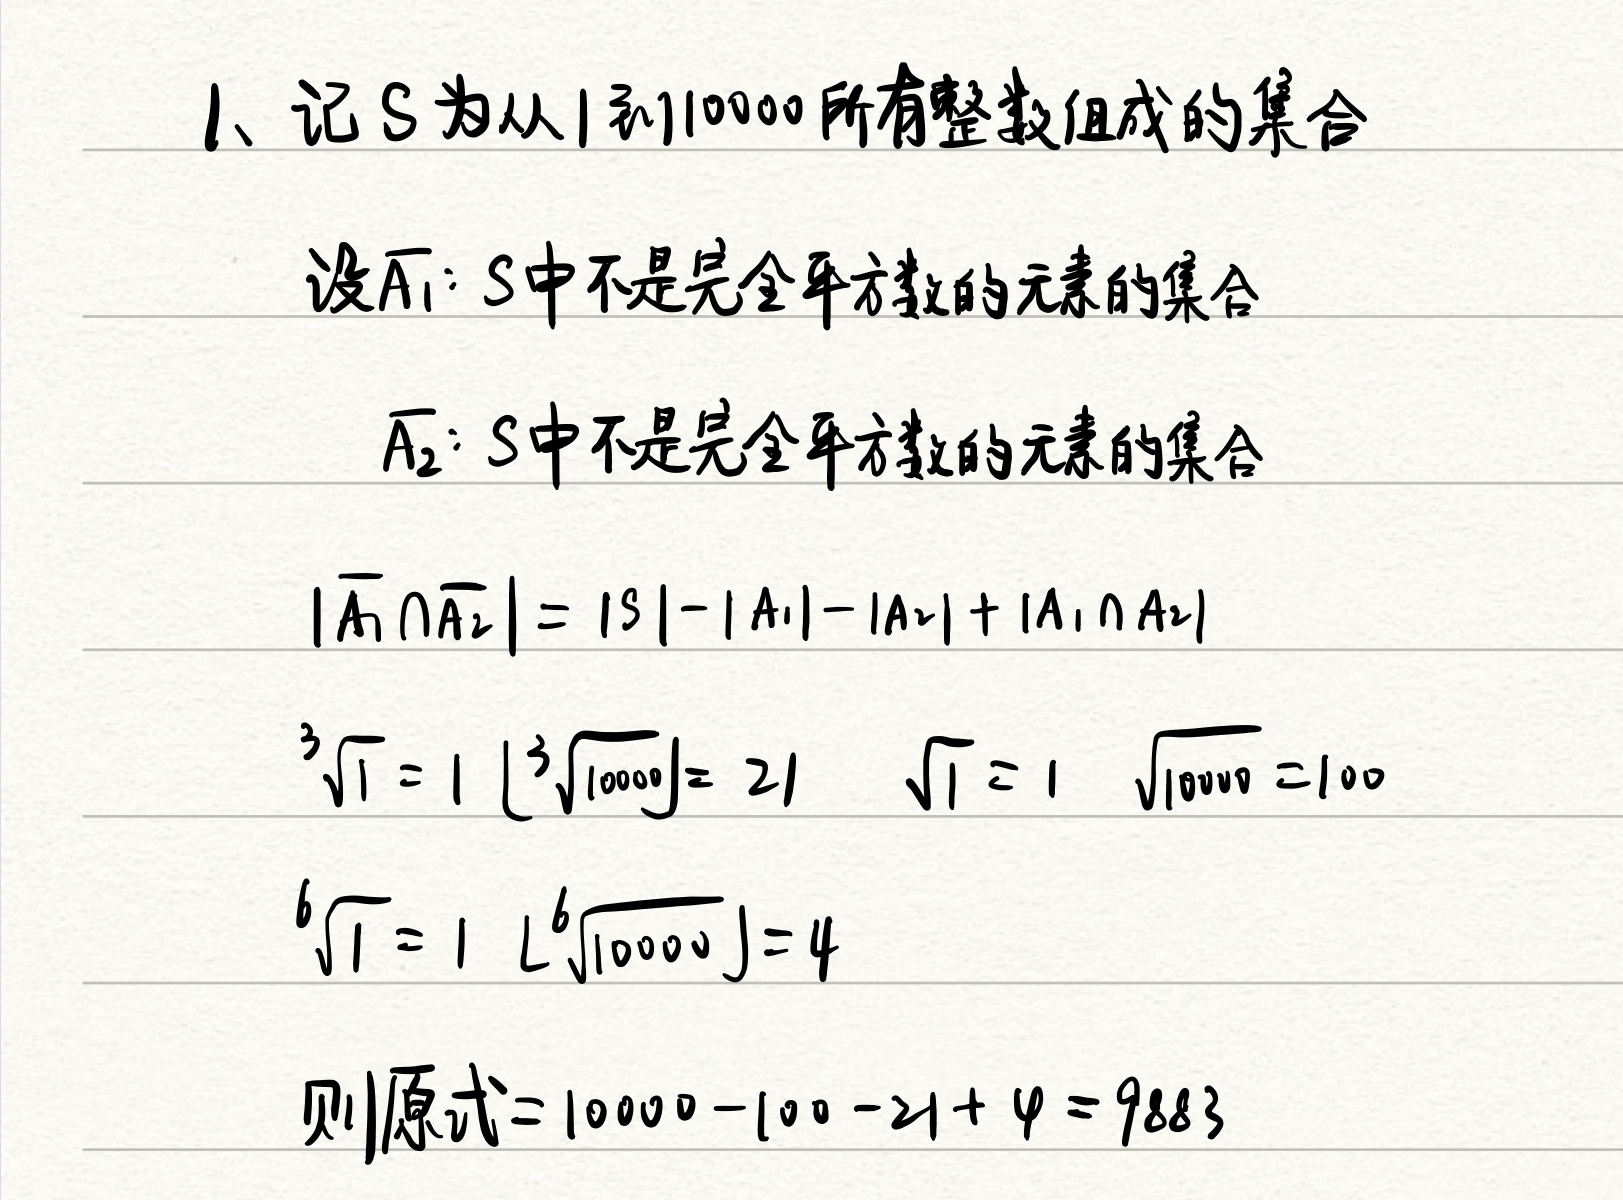 1、记S为从1到10000所有整数组成的集合
设A̅₁：S中不是完全平方数的元素的集合
A̅₂：S中不是完全平方数的元素的集合
|A̅₁∩A̅₂| = |S|-|A₁|-|A₂|+|A₁∩A₂|
³√1 = 1 ⌊³√10000⌋ = 21 √1 = 1 √10000 = 100
⁶√1 = 1 ⌊⁶√10000⌋ = 4
则原式=10000-100-21+4=9883